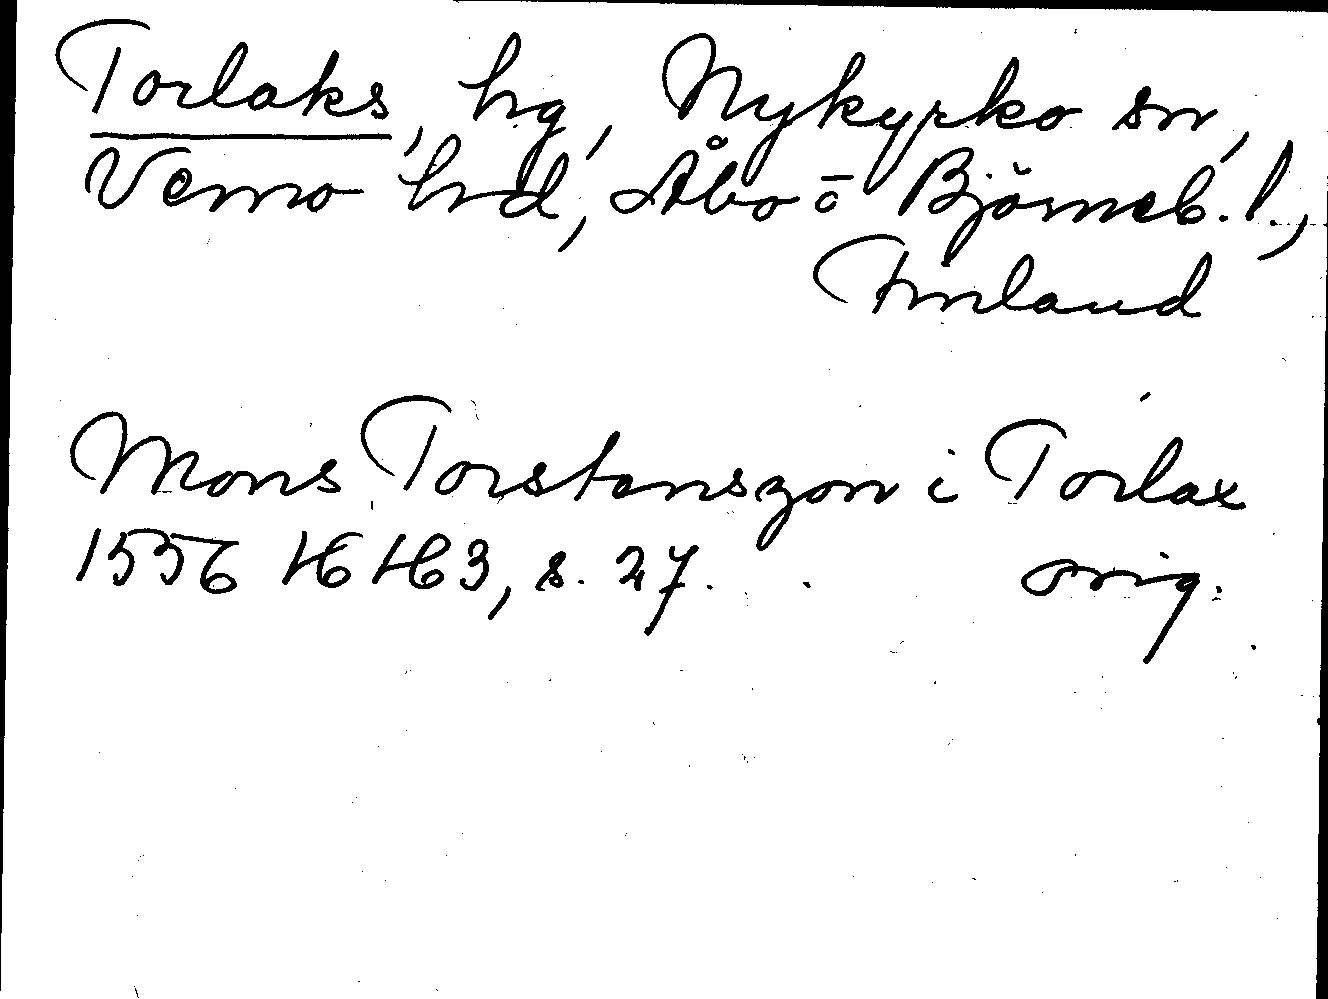 Torlaks, hg, Nykyrko sn,
Vemo hrd, Åbo o Björneb. l.,
Finland
Mons Torstenszon i Torlax
1556 HH 3, s. 27. orig.